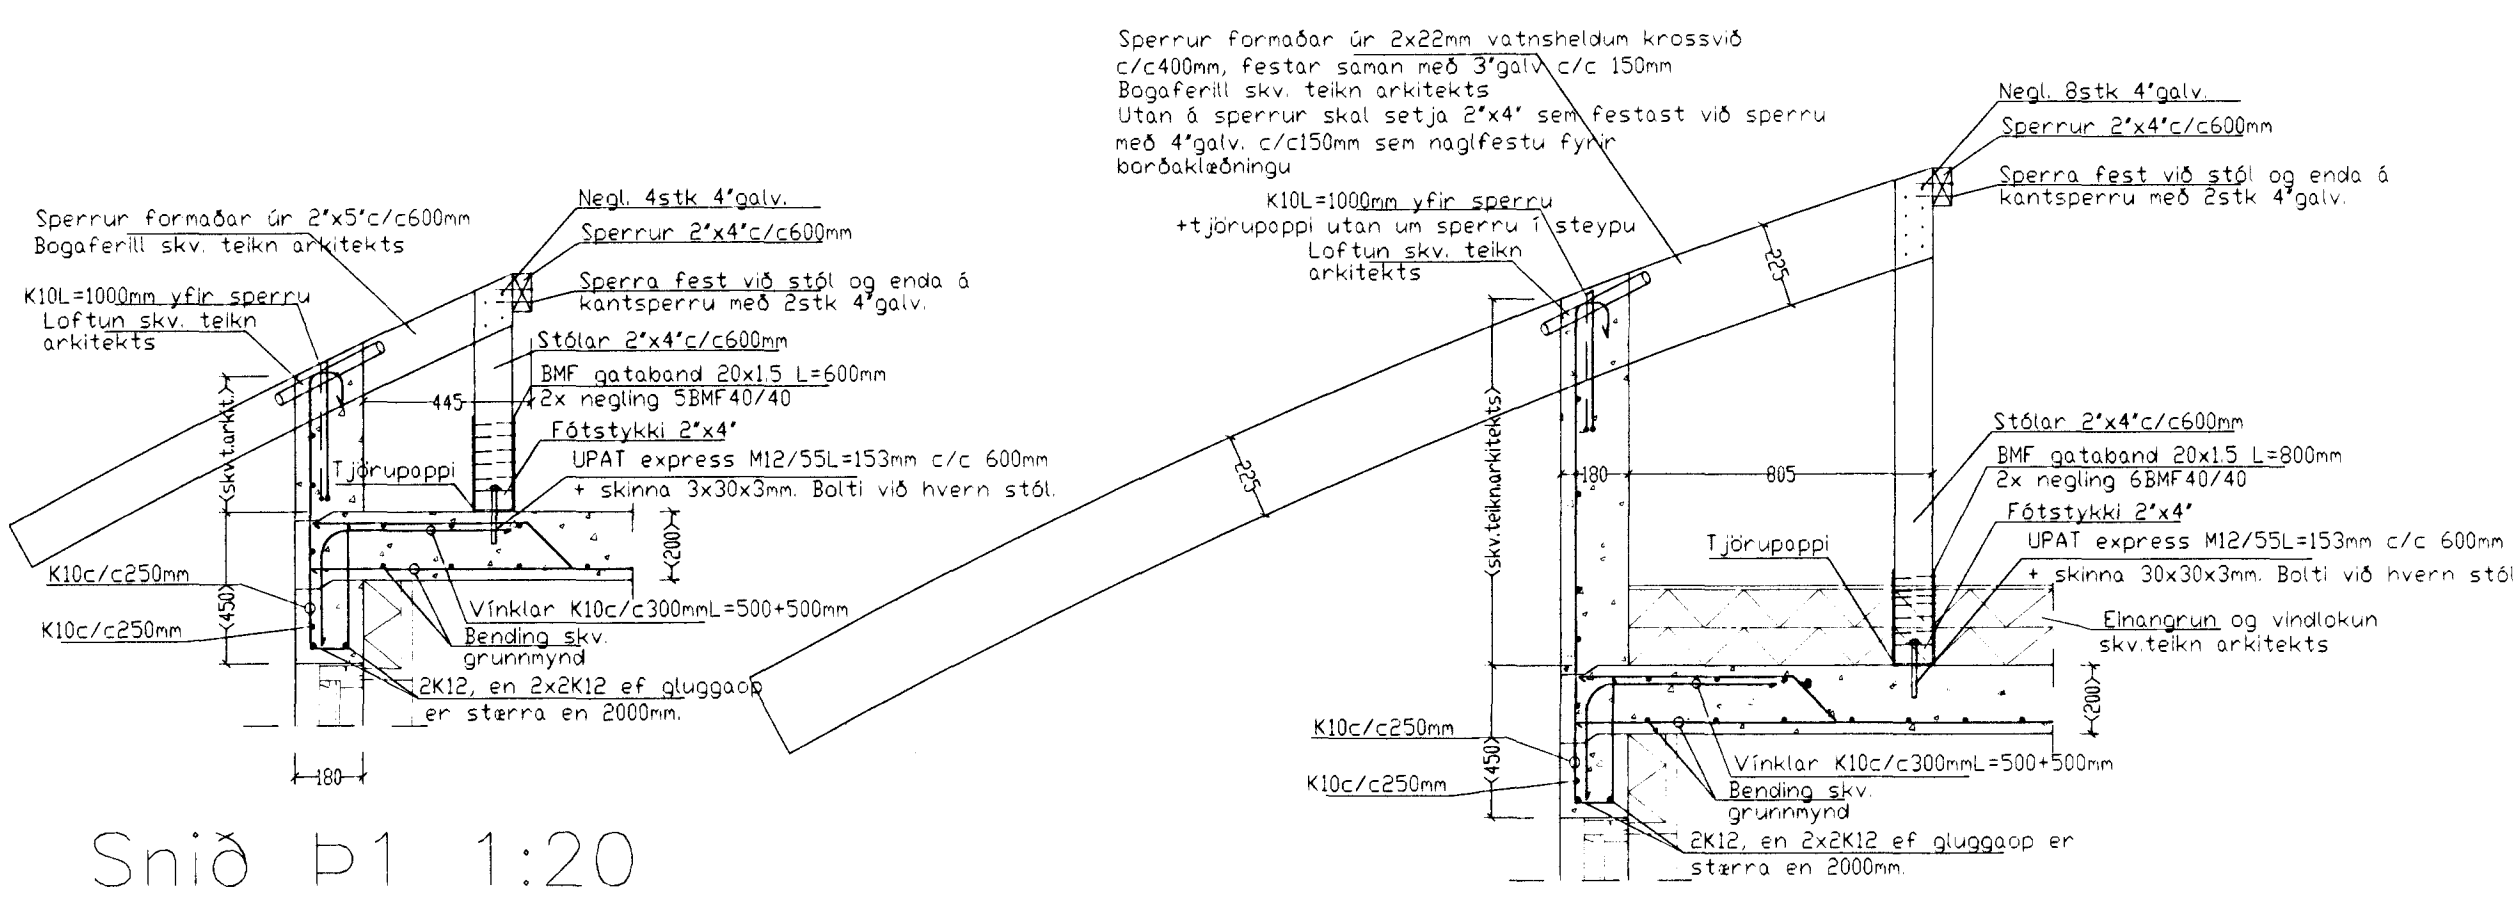 Sperrur formaðar úr 2"x5"c/c600mm
Bogaferill skv. teikn arkitekts
K10L=1000mm yfir sperru
Loftun skv. teikn
arkitekts
Negl. 4stk 4"galv.
Sperrur 2"x4"c/c600mm
Sperra fest við stól og enda á
kantsperru með 2stk 4"galv.
Stólar 2"x4"c/c600mm
BMF gataband 20x1.5 L=600mm
2x negling 5BMF40/40
445
Fótstykki 2"x4"
UPAT express M12/55L=153mm c/c 600mm
+ skinna 3x30x3mm. Bolti við hvern stól.
Tjörupappi
<skv.t.arkit.>
<200>
<450>
K10c/c250mm
K10c/c250mm
Vínklar K10c/c300mmL=500+500mm
Bending skv.
grunnmynd
2K12, en 2x2K12 ef gluggaop
er stærra en 2000mm.
180
Snið Þ1 1:20
Sperrur formaðar úr 2x22mm vatnsheldum krossvið
c/c400mm, festar saman með 3"galv c/c 150mm
Bogaferill skv. teikn arkitekts
Utan á sperrur skal setja 2"x4" sem festast við sperru
með 4"galv. c/c150mm sem naglfestu fyrir
borðaklæðningu
K10L=1000mm yfir sperru
+tjörupappi utan um sperru í steypu
Loftun skv. teikn
arkitekts
Negl. 8stk 4"galv.
Sperrur 2"x4"c/c600mm
Sperra fest við stól og enda á
kantsperru með 2stk 4"galv.
225
225
<skv.teikn.arkitekts>
180
805
Stólar 2"x4"c/c600mm
BMF gataband 20x1.5 L=800mm
2x negling 6BMF40/40
Fótstykki 2"x4"
UPAT express M12/55L=153mm c/c 600mm
+ skinna 30x30x3mm. Bolti við hvern stól
Tjörupappi
Einangrun og vindlokun
skv.teikn arkitekts
<200>
<450>
K10c/c250mm
K10c/c250mm
Vínklar K10c/c300mmL=500+500mm
Bending skv.
grunnmynd
2K12, en 2x2K12 ef gluggaop er
stærra en 2000mm.